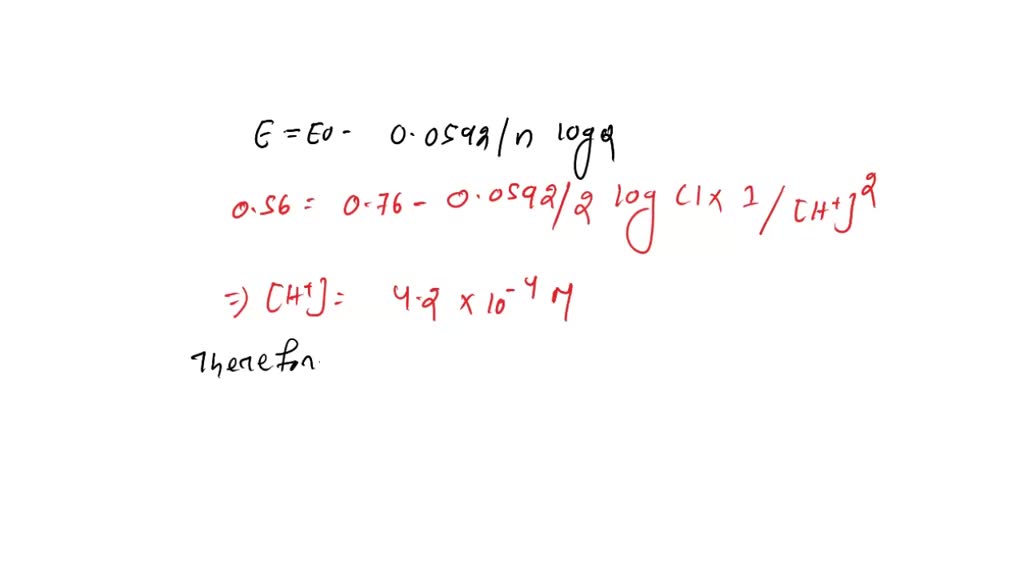 E = E0 - 0.0592/n log Q
0.56 = 0.76 - 0.0592/2 log (1 x 1/[H+]²
=) [H+] = 4.2 x 10⁻⁴ M
Therefor